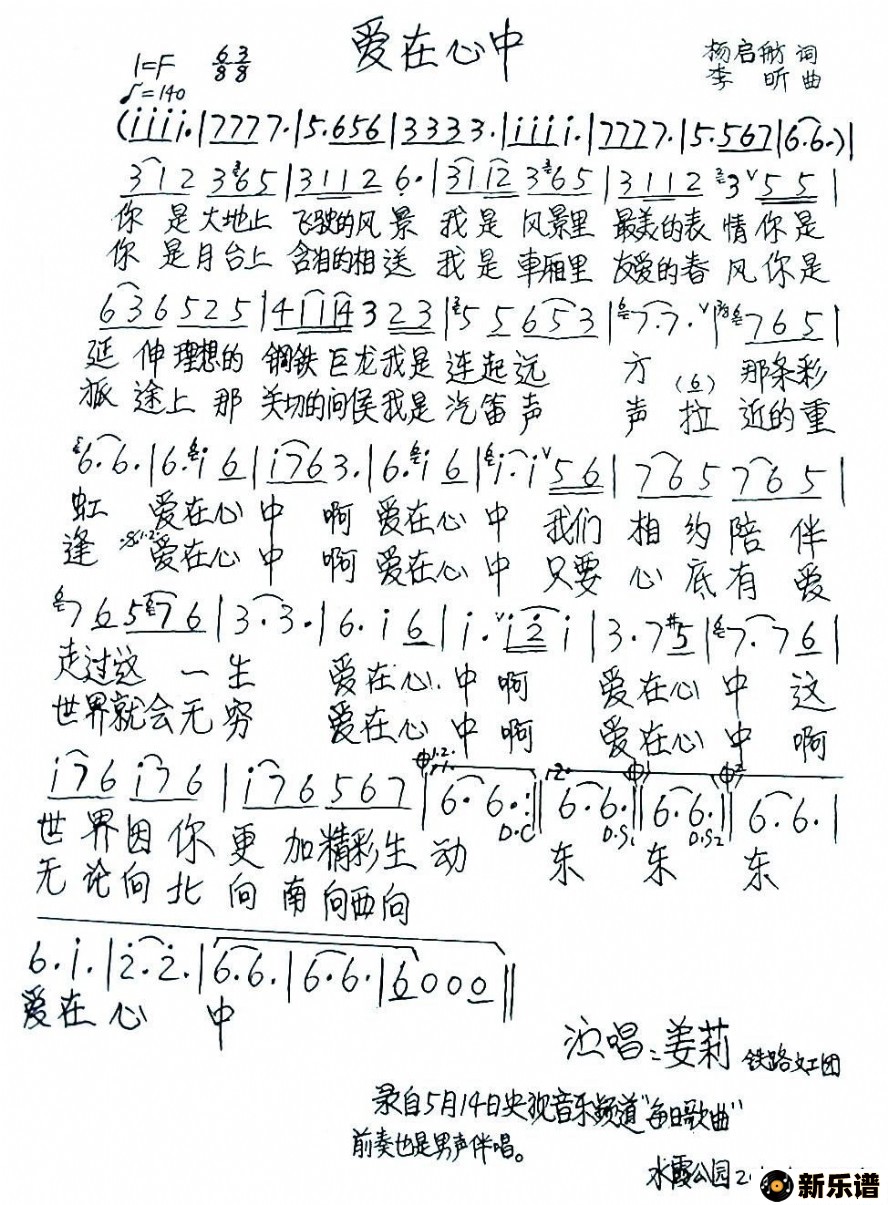 爱在心中
1=F 6/8 3/8
♪=140
杨启舫 词
李昕 曲
(i i i i.|7 7 7 7.|5. 6 5 6|3 3 3 3.|i i i i.|7 7 7 7.|5. 5 6 7|6. 6.)|
3 1 2 3 6 5|3 1 1 2 6.|3 1 1 2 3 6 5|3 1 1 2 3 V 5 5|
你是大地上 飞驶的风景 我是风景里 最美的表情你是
你是月台上 含泪的相送 我是车厢里 友爱的春风你是
6 3 6 5 2 5|4 1 1 4 3 2 3|5 5 6 5 3|7. 7. V|7 6 5|
延伸理想的 钢铁巨龙我是连起远方 (6) 那条彩
旅途上那 关切的问候我是汽笛声声拉近的重
6. 6.|6. i 6|i 7 6 3.|6. i 6|i. i V 5 6|7 6 5 7 6 5|
虹 爱在心中 啊 爱在心中 我们相约陪伴
逢 爱在心中 啊 爱在心中 只要心底有爱
7 6 5 7 6|3. 3.|6. i 6|i. V i 2 i|3. 7 #5|7. 7 6|
走过这一生 爱在心中啊 爱在心中这
世界就会无穷 爱在心中啊 爱在心中啊
i 7 6 i 7 6|i 7 6 5 6 7|6. 6. :‖ 6. 6. ‖ 6. 6. ‖ 6. 6.|
D.C D.S1 D.S2
世界因你更加精彩生动 东 东 东
无论向北向南向西向
6. i.|2. 2.|6. 6.|6. 6.|6 0 0 0‖
爱在心中
演唱:姜莉 铁路文工团
录自5月14日央视音乐频道"每日歌曲"
前奏也是男声伴唱。
水霞公园2
新乐谱